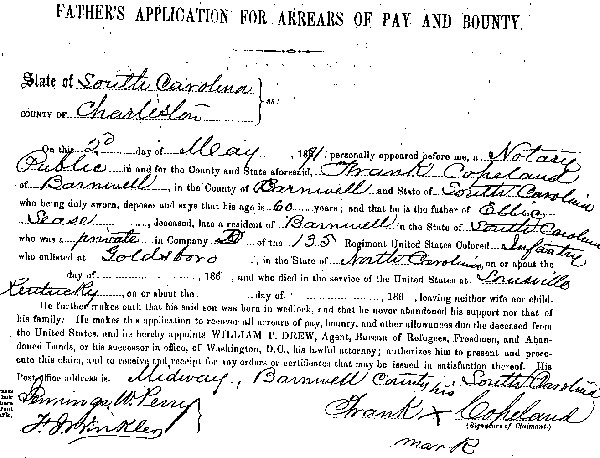 FATHER'S APPLICATION FOR ARREARS OF PAY AND BOUNTY.
State of South Carolina
COUNTY OF Charleston } ss:
On this 2d day of May, 1871, personally appeared before me, a Notary
Public in and for the County and State aforesaid, Frank Copeland
of Barnwell, in the County of Barnwell and State of South Carolina
who being duly sworn, deposes and says that his age is 60 years; and that he is the father of
Sease, deceased, late a resident of Barnwell in the State of South Carolina
who was a private in Company D of the 135 Regiment United States Colored Infantry
who enlisted at Goldsboro, in the State of North Carolina, on or about the
day of , 186 , and who died in the service of the United States at Louisville
Kentucky, on or about the day of , 186 , leaving neither wife nor child.
He further makes oath that his said son was born in wedlock, and that he never abandoned his support nor that of
his family. He makes this application to recover all arrears of pay, bounty, and other allowances due the deceased from
the United States, and he hereby appoints WILLIAM P. DREW, Agent, Bureau of Refugees, Freedmen, and Aban-
doned Lands, or his successor in office, of Washington, D.C., his lawful attorney; authorizes him to present and prose-
cute this claim, and to receive and receipt for any orders or certificates that may be issued in satisfaction thereof. His
Post office address is. Midway, Barnwell County, South Carolina
Jennings W. Perry
his
Frank X Copeland
F. J. Winkles
(Signature of Claimant.)
mark